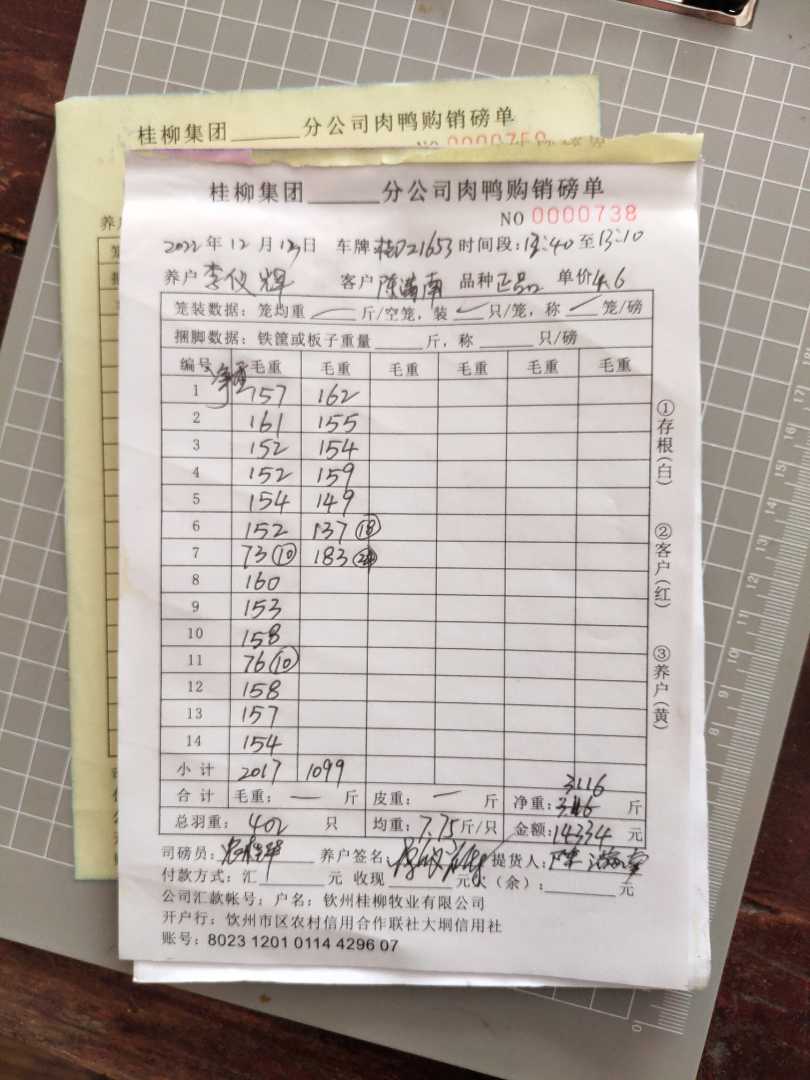 桂柳集团______分公司肉鸭购销磅单
NO 0000759
养户
桂柳集团______分公司肉鸭购销磅单
NO 0000738
2022年12月13日 车牌 21653 时间段:13:40至13:10
养户 李仪辉 客户 陈满南 品种 正品 单价 4.6
笼装数据:笼均重 — 斤/空笼,装 只/笼,称 笼/磅
捆脚数据:铁筐或板子重量______斤,称______只/磅
编号 净重 毛重 毛重 毛重 毛重 毛重 毛重
1 157 162
2 161 155
3 152 154
4 152 159
5 154 149
6 152 137 ⑱
7 73 ⑩ 183
8 160
9 153
10 158
11 76 ⑩
12 158
13 157
14 154
小计 2017 1099
3116
合计 毛重: — 斤 皮重: — 斤 净重: 3116 斤
总羽重: 402 只 均重: 7.75 斤/只 金额: 14334 元
司磅员: 养户签名 提货人:
付款方式:汇______元 收现______元 欠(余):______元
公司汇款帐号:户名:钦州桂柳牧业有限公司
开户行:钦州市区农村信用合作联社大垌信用社
账号:8023 1201 0114 4296 07
①存根(白)
②客户(红)
③养户(黄)